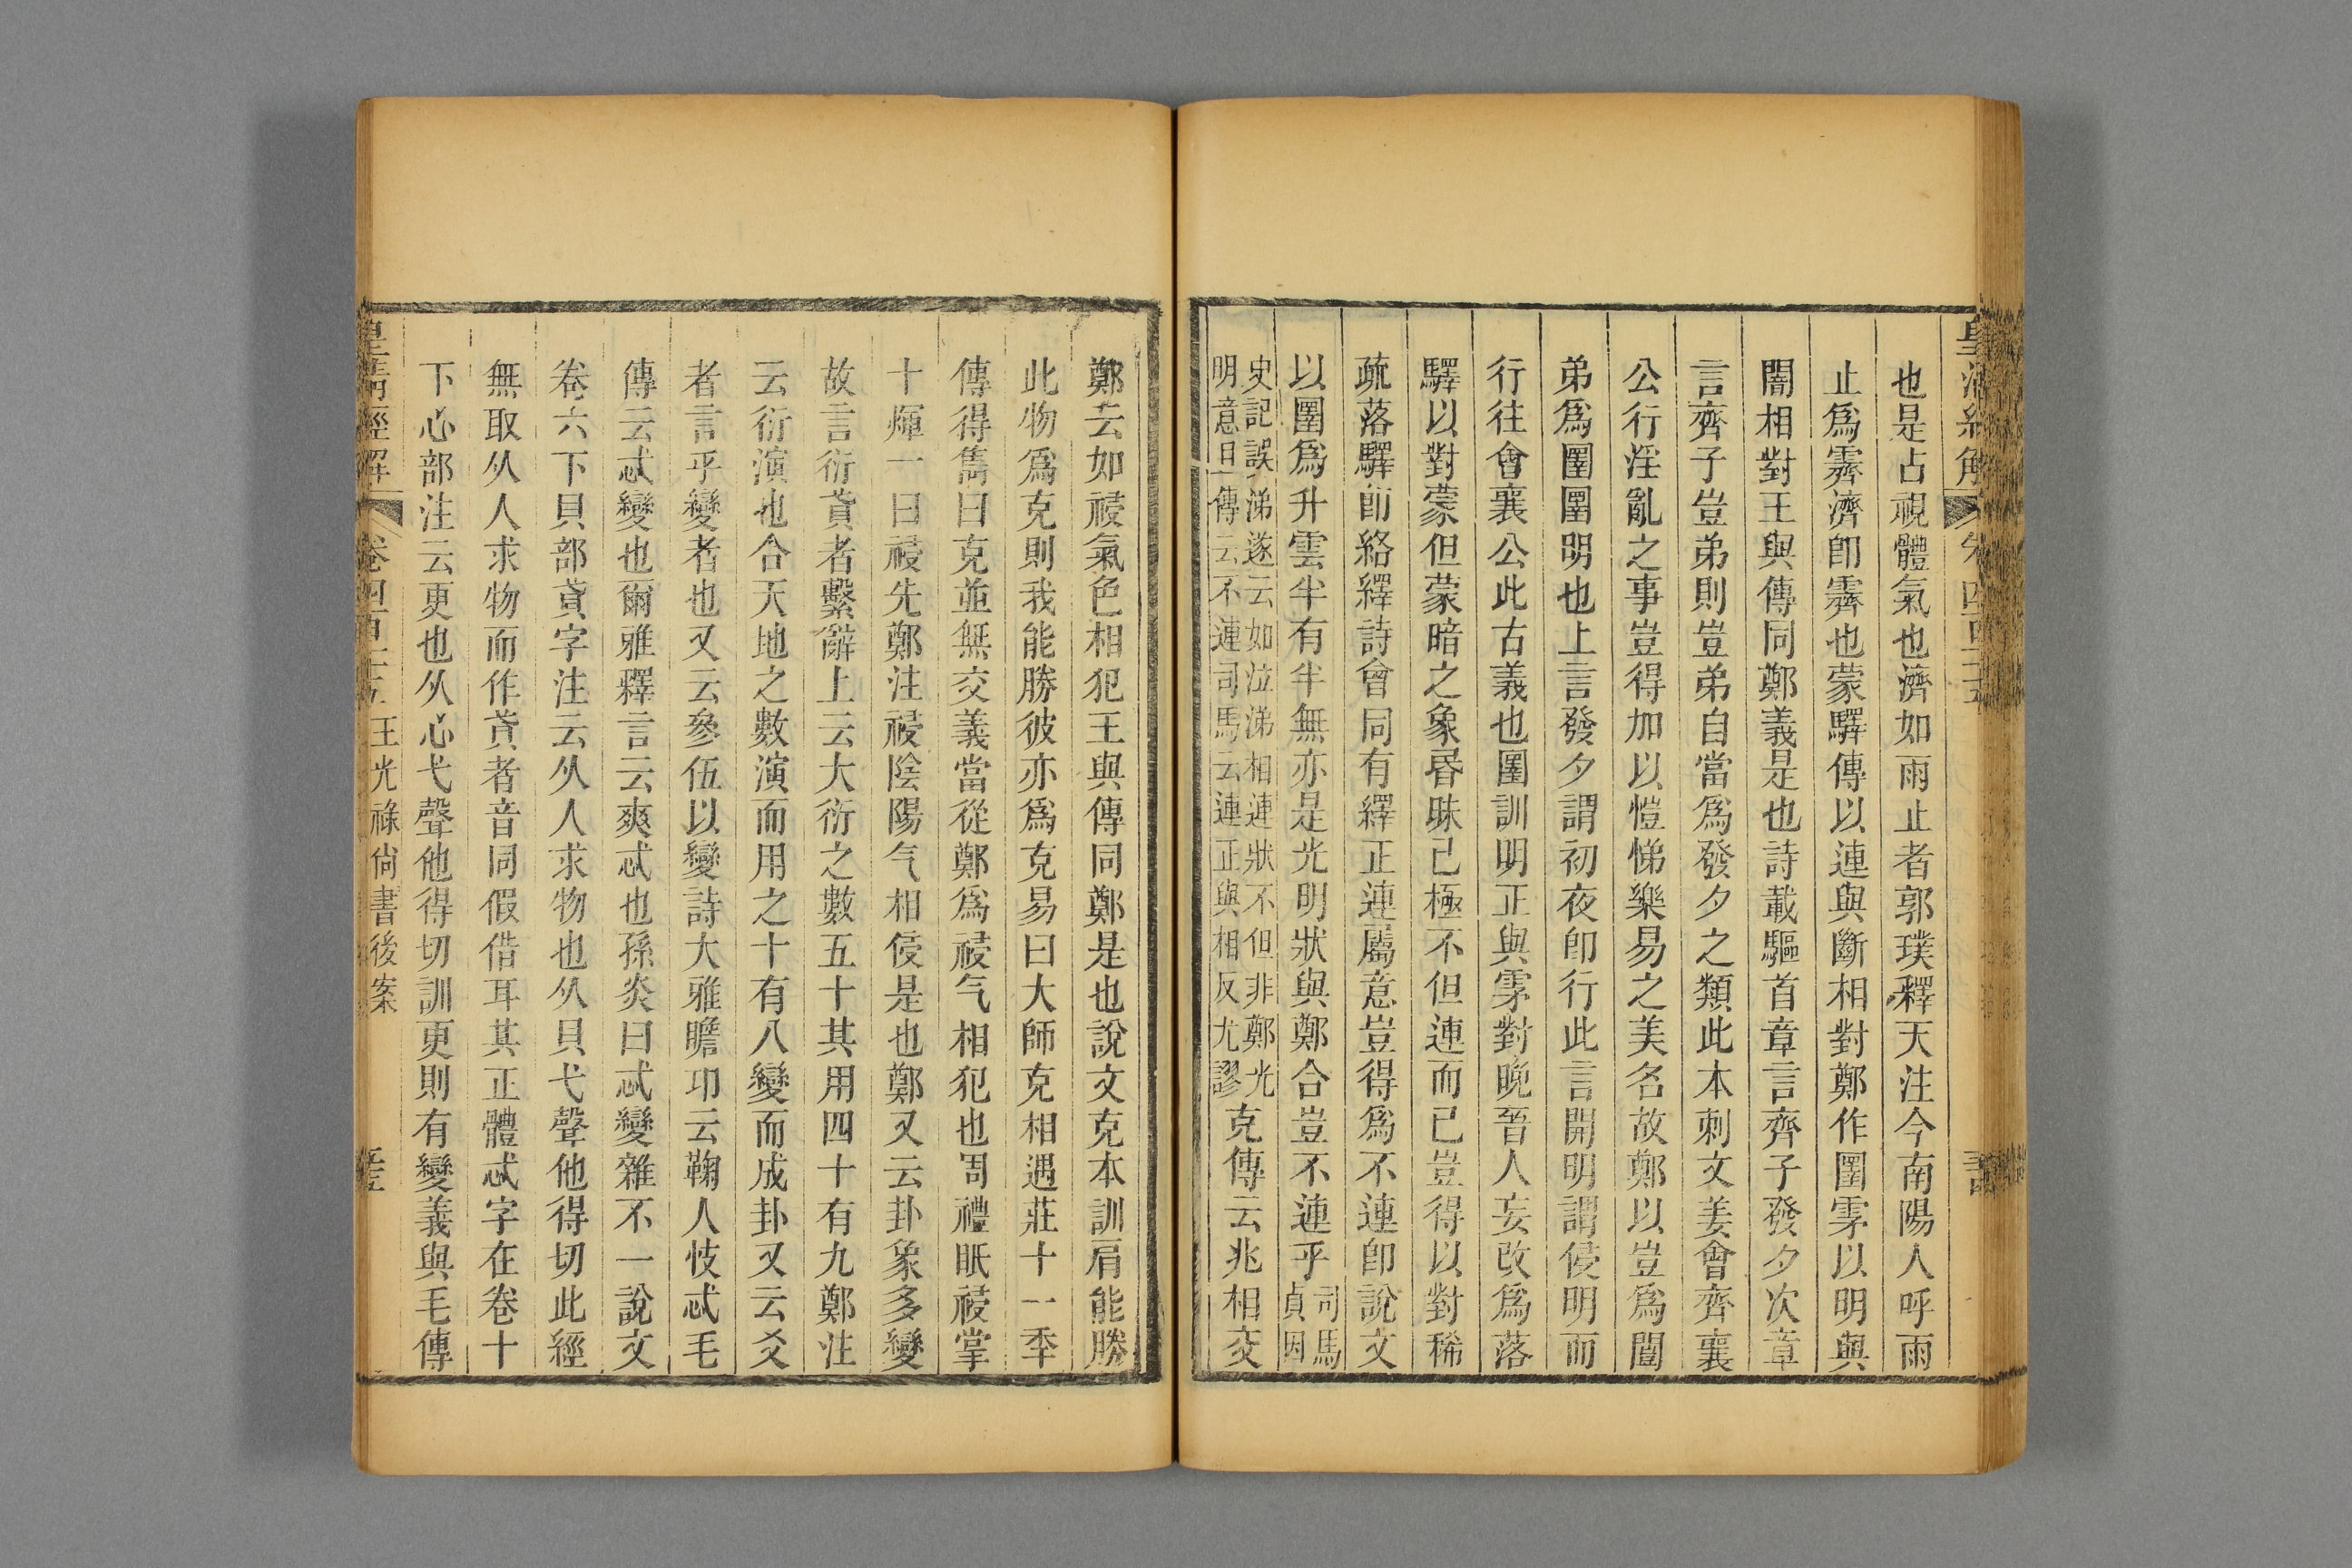 也是占視體氣也濟如雨止者郭璞釋天注今南陽人呼雨
止爲霽濟卽霽也蒙驛傳以連與斷相對鄭作圛雺以明與
闇相對王與傳同鄭義是也詩載驅首章言齊子發夕次章
言齊子豈弟則豈弟自當爲發夕之類此本刺文姜會齊襄
公行淫亂之事豈得加以愷悌樂易之美名故鄭以豈爲闓
弟爲圛圛明也上言發夕謂初夜卽行此言開明謂侵明而
行往會襄公此古義也圛訓明正與雺對晚晉人妄改爲落
驛以對蒙但蒙暗之象昬昧已極不但連而已豈得以對稀
疏落驛卽絡繹詩會同有繹正連屬意豈得爲不連卽說文
以圛爲升雲半有半無亦是光明狀與鄭合豈不連乎司馬
貞因
史記誤涕遂云如泣涕相連狀不但非鄭光
明意且傳云不連司馬云連正與相反尤謬
克傳云兆相交
鄭云如祲氣色相犯王與傳同鄭是也說文克本訓肩能勝
此物爲克則我能勝彼亦爲克易曰大師克相遇莊十一季
傳得儁曰克並無交義當從鄭爲祲气相犯也周禮眂祲掌
十煇一曰祲先鄭注祲陰陽气相侵是也鄭又云卦象多變
故言衍貣者繫辭上云大衍之數五十其用四十有九鄭注
云衍演也合天地之數演而用之十有八變而成卦又云爻
者言乎變者也又云參伍以變詩大雅瞻卬云鞫人忮忒毛
傳云忒變也爾雅釋言云爽忒也孫炎曰忒變雜不一說文
卷六下貝部貣字注云从人求物也从貝弋聲他得切此經
無取从人求物而作貣者音同假借耳其正體忒字在卷十
下心部注云更也从心弋聲他得切訓更則有變義與毛傳
皇淸經解 卷四百二十五 王光祿尚書後案 三五